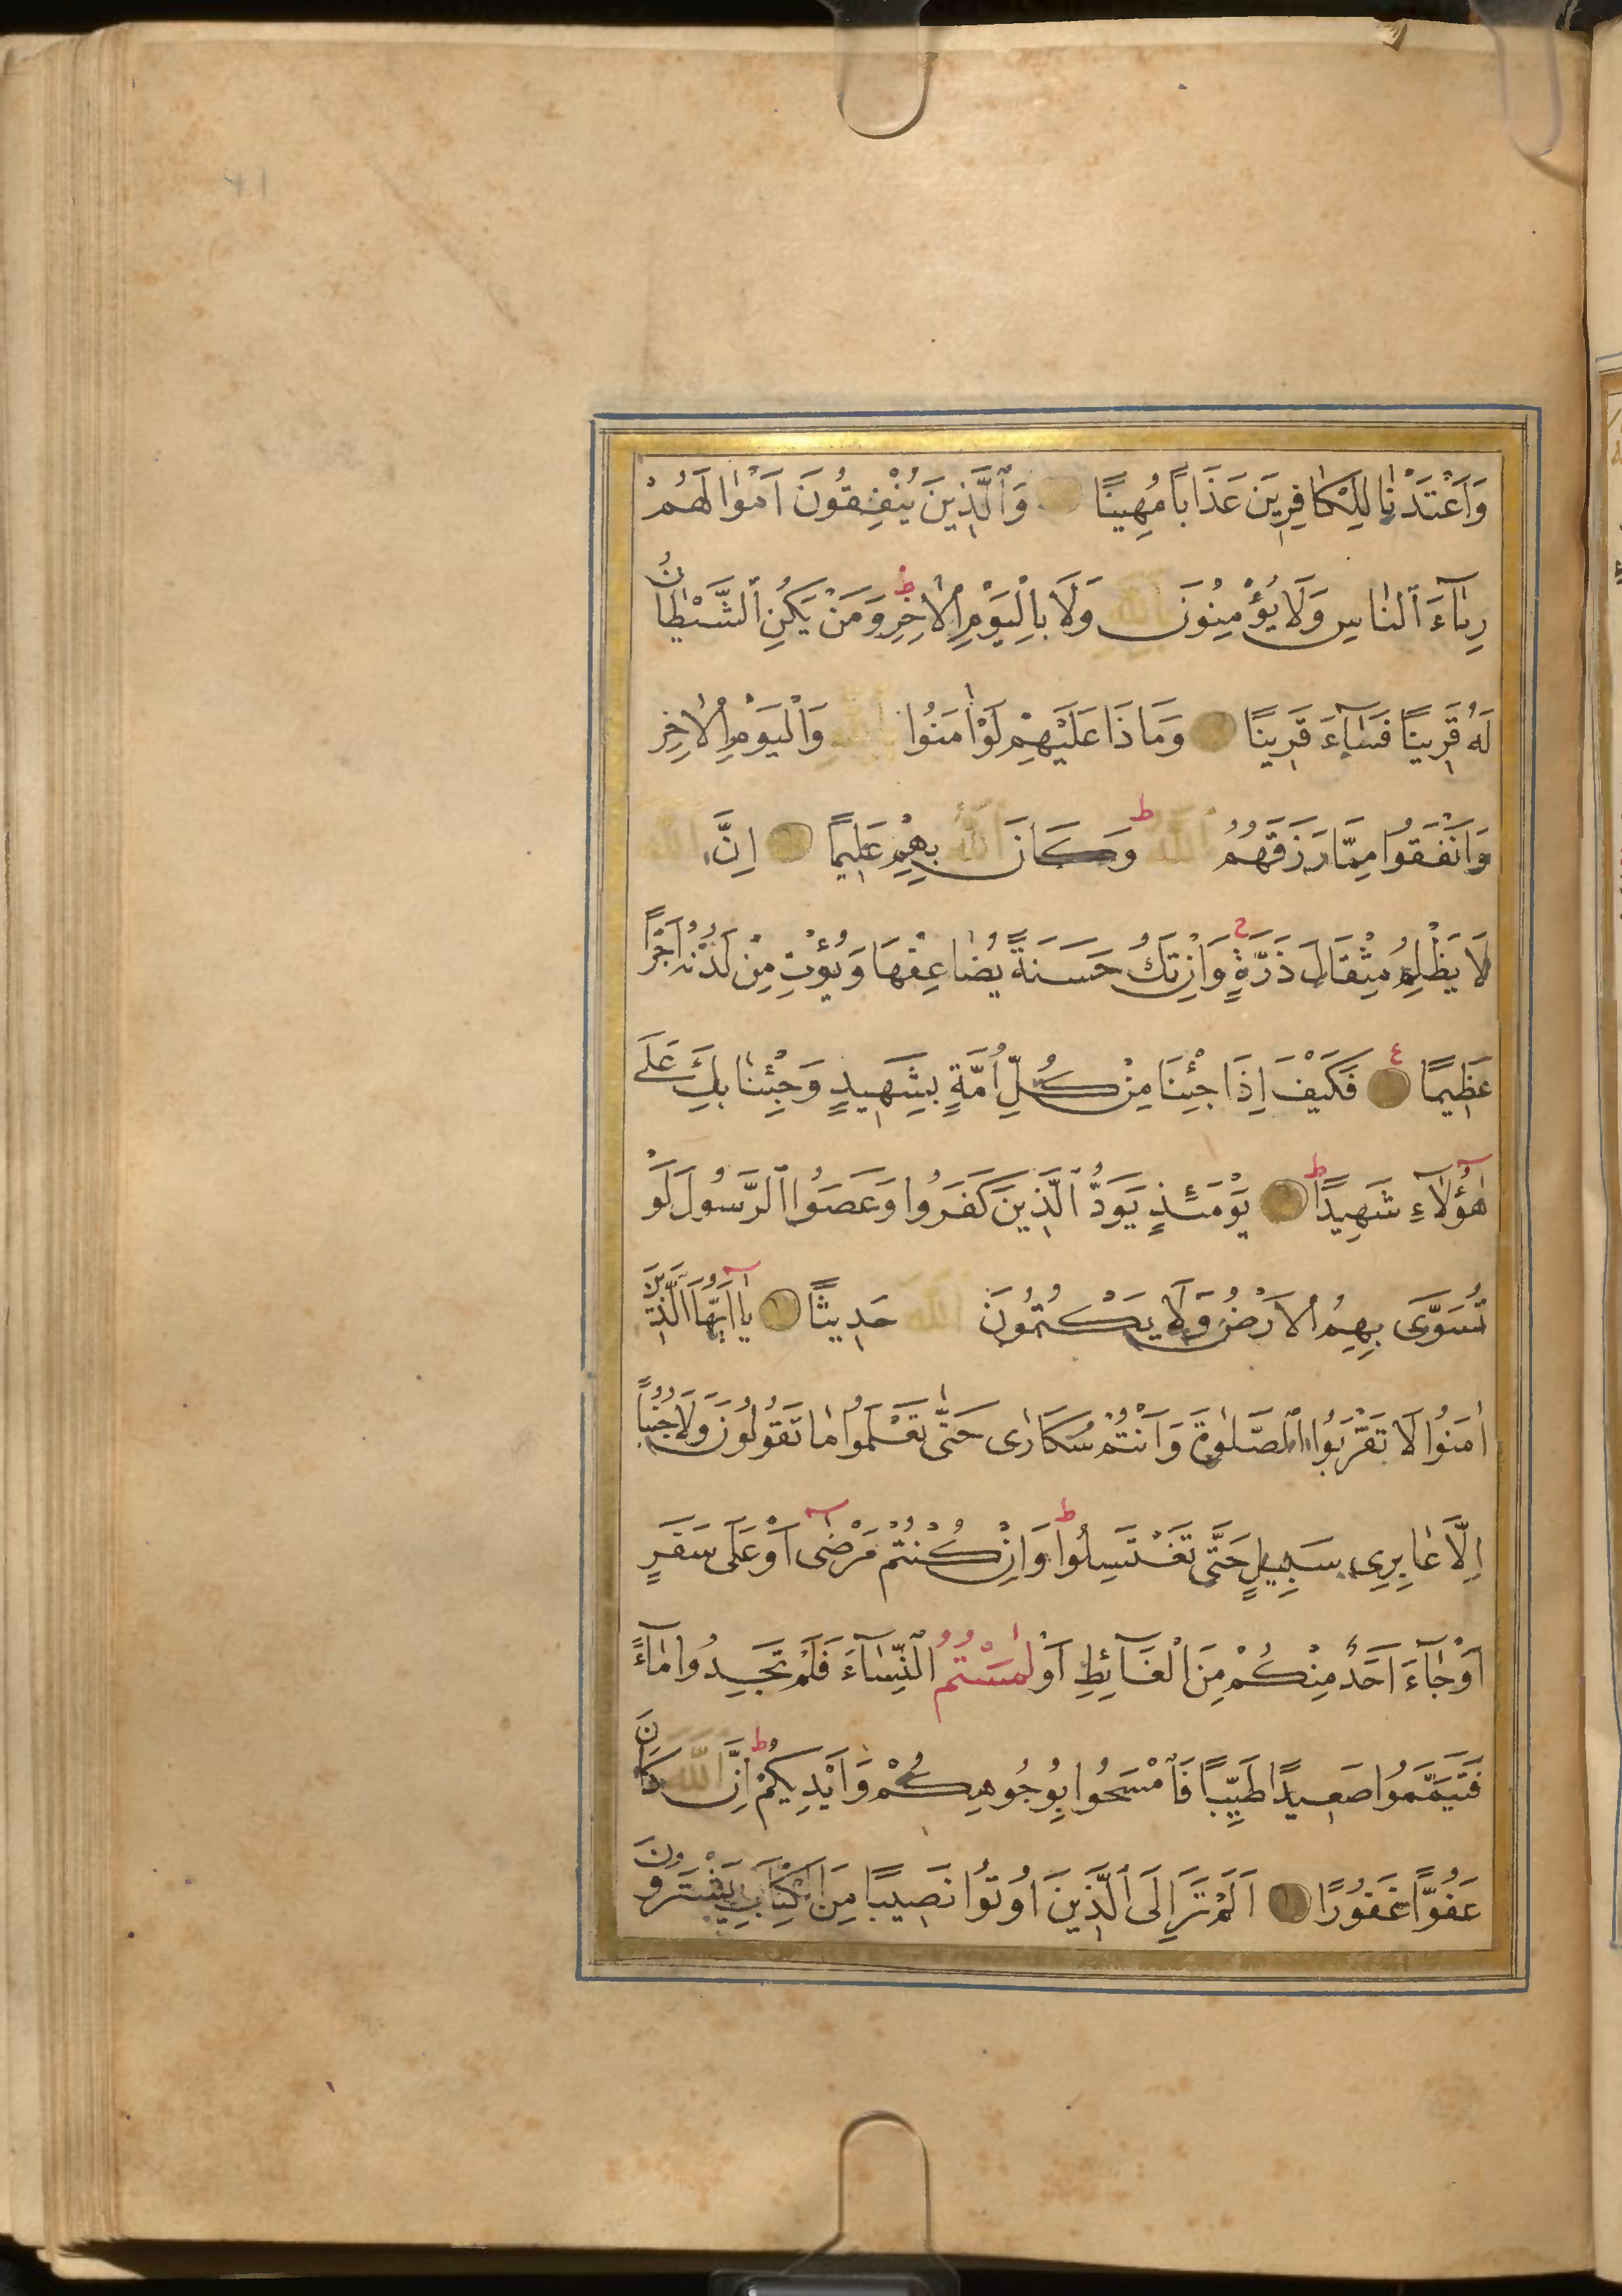 وَاَعْتَدْنَا لِلْكَافِرِينَ عَذَابًا مُهِينًا وَالَّذِينَ يُنْفِقُونَ اَمْوَالَهُمْ
رِئَاءَ النَّاسِ وَلَا يُؤْمِنُونَ بِاللّٰهِ وَلَا بِالْيَوْمِ الْاٰخِرِ ط وَمَنْ يَكُنِ الشَّيْطَانُ
لَهُ قَرِينًا فَسَاءَ قَرِينًا وَمَاذَا عَلَيْهِمْ لَوْ اٰمَنُوا بِاللّٰهِ وَالْيَوْمِ الْاٰخِرِ
وَاَنْفَقُوا مِمَّا رَزَقَهُمُ اللّٰهُ ط وَكَانَ اللّٰهُ بِهِمْ عَلِيمًا اِنَّ اللّٰهَ
لَا يَظْلِمُ مِثْقَالَ ذَرَّةٍ ج وَاِنْ تَكُ حَسَنَةً يُضَاعِفْهَا وَيُؤْتِ مِنْ لَدُنْهُ اَجْرًا
عَظِيمًا ع فَكَيْفَ اِذَا جِئْنَا مِنْ كُلِّ اُمَّةٍ بِشَهِيدٍ وَجِئْنَا بِكَ عَلَى
هٰؤُلَاءِ شَهِيدًا ط يَوْمَئِذٍ يَوَدُّ الَّذِينَ كَفَرُوا وَعَصَوُا الرَّسُولَ لَوْ
تُسَوَّى بِهِمُ الْاَرْضُ وَلَا يَكْتُمُونَ اللّٰهَ حَدِيثًا يَا اَيُّهَا الَّذِينَ
اٰمَنُوا لَا تَقْرَبُوا الصَّلٰوةَ وَاَنْتُمْ سُكَارٰى حَتّٰى تَعْلَمُوا مَا تَقُولُونَ وَلَا جُنُبًا
اِلَّا عَابِرِى سَبِيلٍ حَتَّى تَغْتَسِلُوا ط وَاِنْ كُنْتُمْ مَرْضٰى اَوْ عَلَى سَفَرٍ
اَوْ جَاءَ اَحَدٌ مِنْكُمْ مِنَ الْغَائِطِ اَوْ لٰمَسْتُمُ النِّسَاءَ فَلَمْ تَجِدُوا مَاءً
فَتَيَمَّمُوا صَعِيدًا طَيِّبًا فَامْسَحُوا بِوُجُوهِكُمْ وَاَيْدِيكُمْ ط اِنَّ اللّٰهَ كَانَ
عَفُوًّا غَفُورًا اَلَمْ تَرَ اِلَى الَّذِينَ اُوتُوا نَصِيبًا مِنَ الْكِتَابِ يَشْتَرُونَ